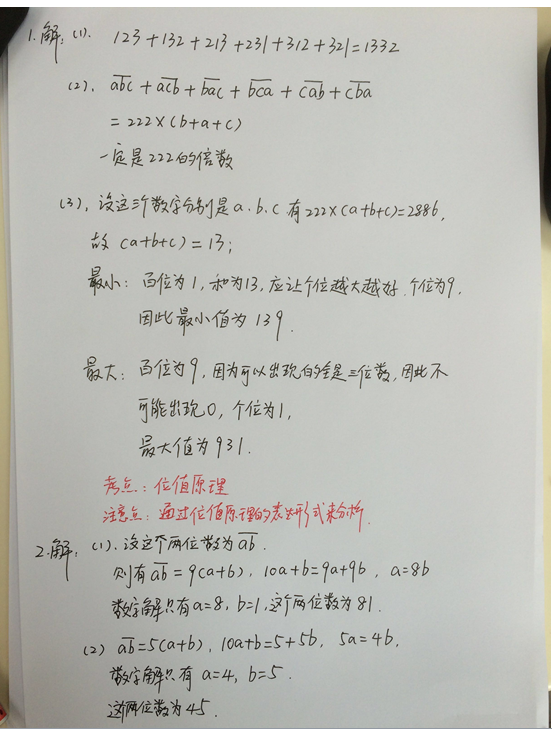 1.解：(1). 123+132+213+231+312+321=1332
(2). a̅b̅c̅ + a̅c̅b̅ + b̅a̅c̅ + b̅c̅a̅ + c̅a̅b̅ + c̅b̅a̅
= 222×(b+a+c)
一定是222的倍数
(3). 设这三个数字分别是a.b.c 有222×(a+b+c)=2886,
故 (a+b+c)=13;
最小：百位为1, 和为13, 应让个位越大越好. 个位为9.
因此最小值为139.
最大：百位为9, 因为可以出现的全是三位数, 因此不
可能出现0, 个位为1,
最大值为931.
考点：位值原理
注意点：通过位值原理的表达形式来分析.
2.解：(1). 设这个两位数为a̅b̅.
则有a̅b̅=9(a+b), 10a+b=9a+9b, a=8b
数字解只有a=8, b=1, 这个两位数为81.
(2) a̅b̅=5(a+b), 10a+b=5+5b, 5a=4b,
数字解只有 a=4, b=5.
这两位数为45.